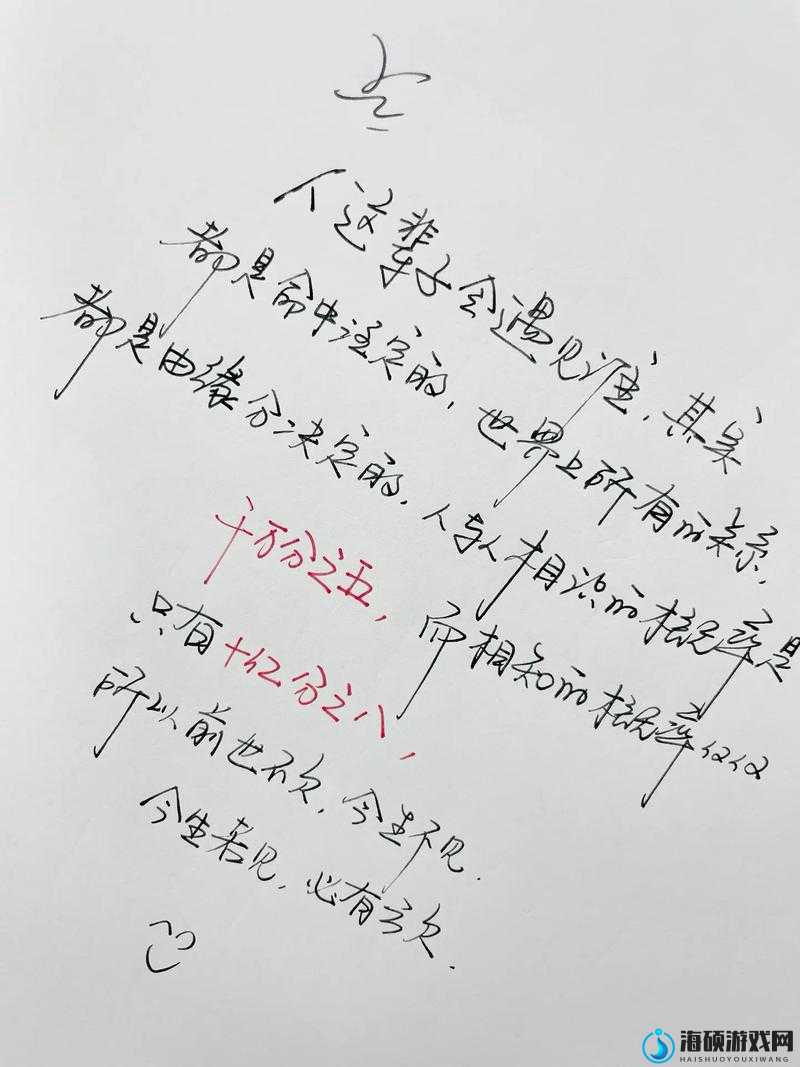 人这辈子会遇见谁,其实
都是命中注定的,世界上所有的关系,
都是由缘分决定的,人与人相识的概率是
千万分之五,而相知的概率仅仅
只有十亿分之八,
所以前世不欠,今生不见.
今生若见,必有亏欠.
海硕游戏网
HAISHUOYOUXIWANG